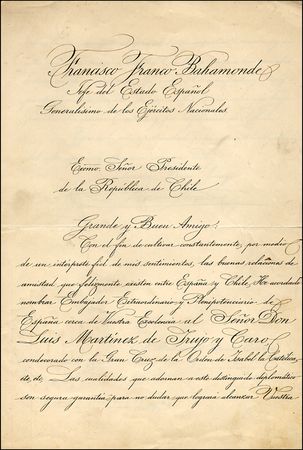 Francisco Franco Bahamonde
Jefe del Estado Español
Generalísimo de los Ejércitos Nacionales
Excmo. Señor Presidente
de la República de Chile
Grande y Buen Amigo:
Con el fin de cultivar constantemente, por medio
de un intérprete fiel de mis sentimientos, las buenas relaciones de
amistad que felizmente existen entre España y Chile, He acordado
nombrar Embajador Extraordinario y Plenipotenciario de
España cerca de Vuestra Excelencia al Señor Don
Luis Martinez de Irujo y Caro,
condecorado con la Gran Cruz de la Orden de Isabel la Católica,
etc, etc, Las cualidades que adornan a este distinguido diplomático
son segura garantía para no dudar que logrará alcanzar Vuestra